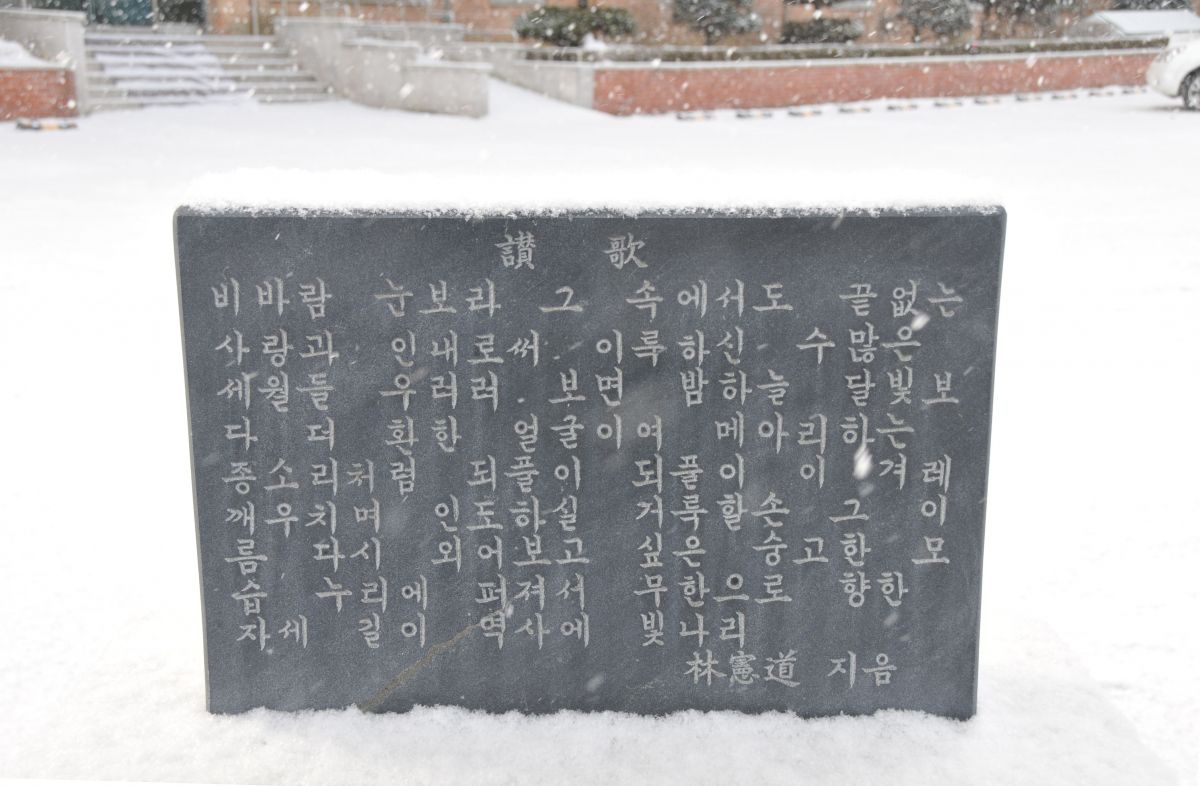 讚歌
비바람 눈보라 그 속에서도 끝없는
사랑과 인내로써 이룩하신 수많은
세월들 우러러 보면 밤하늘 달빛 보
다 더 환한 얼굴이여 메아리하는
종소리처럼 되풀이 되풀이 이겨레
깨우치며 인도하실 거룩할손 그 이
름 다시 외어보고 싶은 숭고한 모
습 누리에 퍼져서 무한으로 향한
자세 길이 역사에 빛나리
林憲道 지음